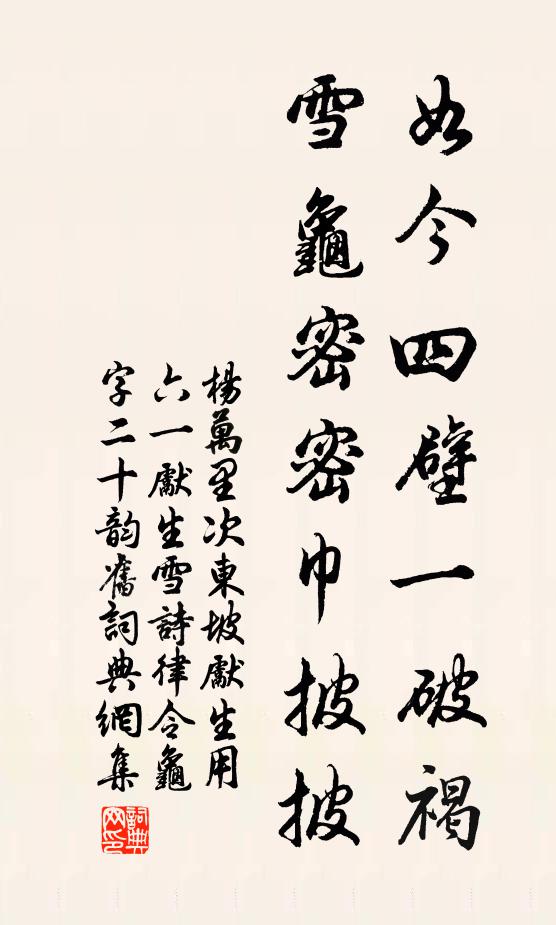 如今四壁一破褐
雪龜密密巾披披
楊萬里次東坡獻生用
六一獻生雪詩律令龜
字二十韵舊詞典網集
詞典网印